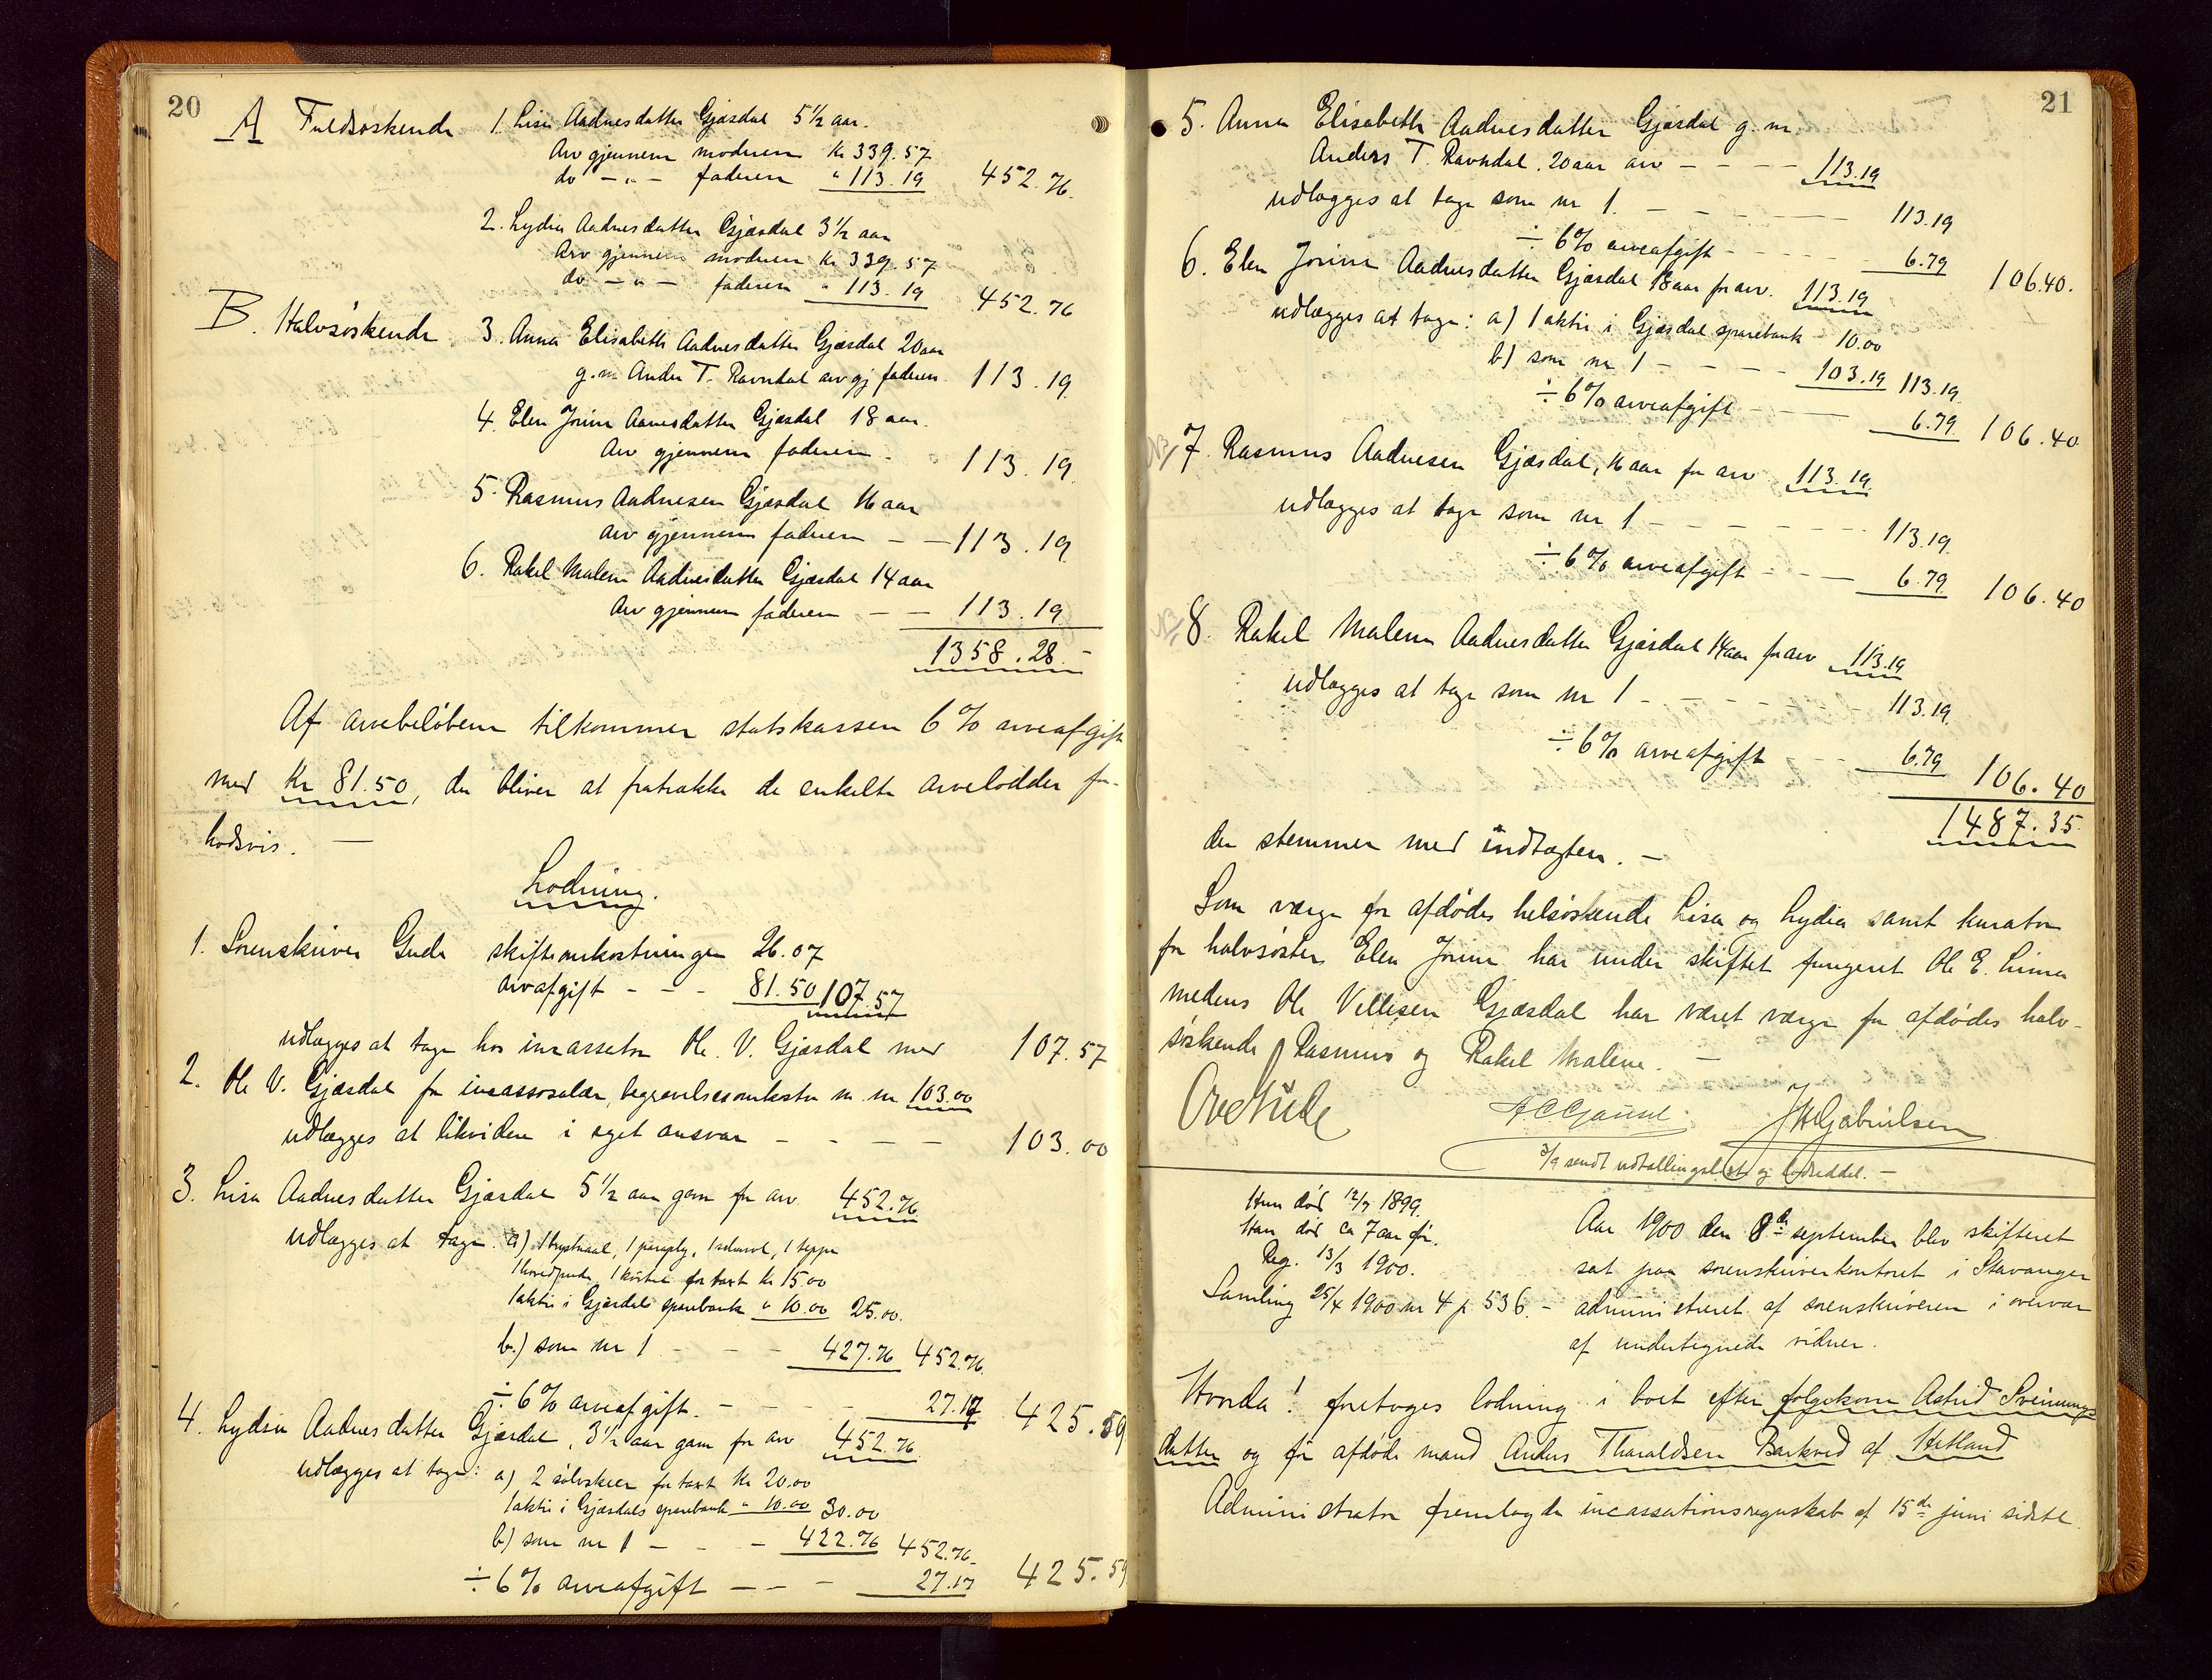 20
A Fuldsøskende 1. Lisa Aadnesdatter Gjæsdal 5 1/2 aar.
Arv gjennem moderen Kr 339.57
do -"- faderen " 113.19 452.76.
2. Lydia Aadnesdatter Gjæsdal 3 1/2 aar
Arv gjennem moderen Kr 339.57
do -"- faderen " 113.19 452.76
B. Halvsøskende 3. Anna Elisabeth Aadnesdatter Gjæsdal 20 aar
g.m. Anders T. Ravndal arv gj faderen 113.19.
4. Elen Jorine Aanesdatter Gjæsdal 18 aar.
Arv gjennem faderen - 113.19.
5. Rasmus Aadnesen Gjæsdal 16 aar
arv gjennem faderen - - 113.19.
6. Rakel Malene Aadnesdatter Gjæsdal 14 aar
Arv gjennem faderen - - 113.19
1358.28.-
Af arvebeløbene tilkommer statskassen 6% arveafgift
med Kr 81.50, der bliver at fratrække de enkelte arvelodder for-
holdsvis. -
Lodning.
1. Sorenskriver Gude skifteomkostninger 26.07
arvafgift - - - 81.50 107.57
udlægges at tage hos incassator Ole V. Gjæsdal med 107.57
2. Ole V. Gjæsdal for incassosalær, begravelsesomkostn m. m 103.00
udlægges at likvidere i eget ansvar - - - - 103.00
3. Lisa Aadnesdatter Gjæsdal 5 1/2 aar gam for arv 452.76
udlægges at tage: a) 1 brystnaal, 1 paraply, 1 schavl, 1 teppe
1 hovedpude, 1 kiste for taxt Kr 15.00
1 aktie i Gjæsdals sparebank " 10.00 25.00.
b.) som nr 1 - - - 427.76 452.76.
÷ 6% arveafgift. - - - - 27.17 425.59
4. Lydia Aadnesdatter Gjæsdal, 3 1/2 aar gam for arv 452.76
udlægges at tage: a) 2 sølvskeer for taxt Kr 20.00
1 aktie i Gjæsdals sparebank " 10.00 30.00
b) som nr 1 - - - 422.76 452.76.
÷ 6% arveafgift - - - 27.17 425.59
21
5. Anna Elisabeth Aadnesdatter Gjæsdal g.m.
Anders T. Ravndal. 20 aar arv - - - - 113.19
udlægges at tage som nr 1. - - - - - 113.19
÷ 6% arveafgift - - - - 6.79 106.40.
6. Elen Jorine Aadnesdatter Gjæsdal 18 aar for arv. 113.19
udlægges at tage: a) 1 aktie i Gjæsdal sparebank - 10.00
b) som nr 1 - - - - 103.19 113.19.
÷ 6% arveafgift - - - 6.79. 106.40
NB/ 7. Rasmus Aadnesen Gjæsdal, 16 aar for arv 113.19.
udlægges at tage som nr 1 - - - - - - 113.19.
÷ 6% arveafgift - - - 6.79 106.40
NB/ 8. Rakel Malene Aadnesdatter Gjæsdal 14 aar for arv 113.19
udlægges at tage som nr 1 - - - - - - 113.19.
÷ 6% arveafgift - - 6.79 106.40
1487.35.
der stemmer med indtægten. -
Som værge for afdødes helsøskende Lisa og Lydia samt kurator
for halvsøster Elen Jorine har under skiftet fungeret Ole E. Lima
medens Ole Villesen Gjæsdal har været værge for afdødes halv-
søskende Rasmus og Rakel Malene. -
Ove Gude A C Gausel. J H Gabrielsen
3/9 sendt udtællingsliste og lodseddel. -
Hun død 12/7 1899.
Han død ca 7 aar før.
Reg. 13/3 1900.
Samling 25/4 1900 nr 4 p. 536. -
Aar 1900 den 8de september blev skifteret
sat paa sorenskriverkontoret i Stavanger
administreret af sorenskriveren i overvær
af undertegnede vidner.
Hvorda! foretoges lodning i boet efter følgekone Astrid Sveinungs-
datter og før afdøde mand Anders Tharaldsen Barkved af Hetland
Administrator fremlagde incassationsregnskab af 15de juni sidstl.